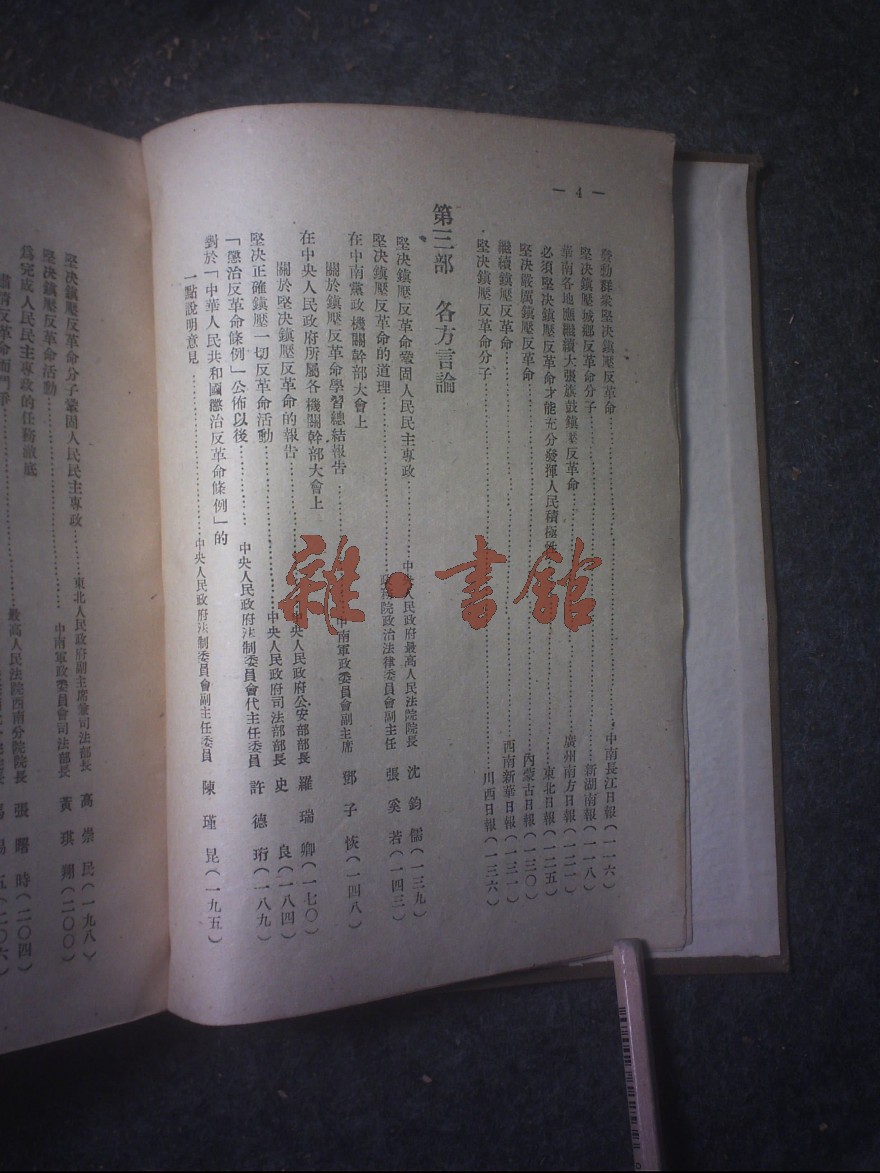 — 4 —
發動群衆堅決鎮壓反革命……中南長江日報(一一六)
堅決鎮壓城鄉反革命分子……新湖南報(一一八)
華南各地應繼續大張旗鼓鎮壓反革命……廣州南方日報(一二一)
必須堅決鎮壓反革命才能充分發揮人民積極性……東北日報(一二五)
堅決嚴厲鎮壓反革命……內蒙古日報(一三〇)
繼續鎮壓反革命……西南新華日報(一三一)
堅決鎮壓反革命分子……川西日報(一三六)
第三部 各方言論
堅決鎮壓反革命鞏固人民民主專政……中央人民政府最高人民法院院長 沈鈞儒(一三九)
堅決鎮壓反革命的道理……政務院政治法律委員會副主任 張奚若(一四三)
在中南黨政機關幹部大會上
關於鎮壓反革命學習總結報告……中南軍政委員會副主席 鄧子恢(一四八)
在中央人民政府所屬各機關幹部大會上
關於堅決鎮壓反革命的報告……中央人民政府公安部部長 羅瑞卿(一七〇)
堅決正確鎮壓一切反革命活動……中央人民政府司法部部長 史良(一八四)
「懲治反革命條例」公佈以後……中央人民政府法制委員會代主任委員 許德珩(一八九)
對於「中華人民共和國懲治反革命條例」的
一點說明意見……中央人民政府法制委員會副主任委員 陳瑾昆(一九五)
堅決鎮壓反革命分子鞏固人民民主專政……東北人民政府副主席兼司法部長 高崇民(一九八)
堅決鎮壓反革命活動……中南軍政委員會司法部長 黃琪翔(二〇〇)
爲完成人民民主專政的任務徹底
肅清反革命而鬥爭……最高人民法院西南分院院長 張曙時(二〇四)
五(二〇六)
雜·書館